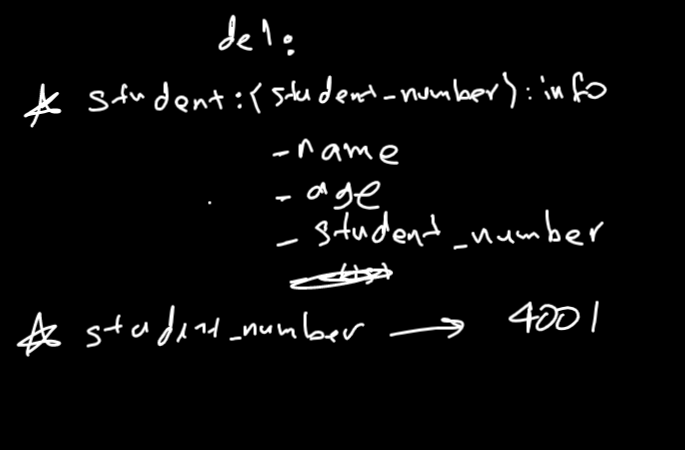 del:
☆ student:{student_number}:info
- name
- age
- student_number
☆ student_number → 4001